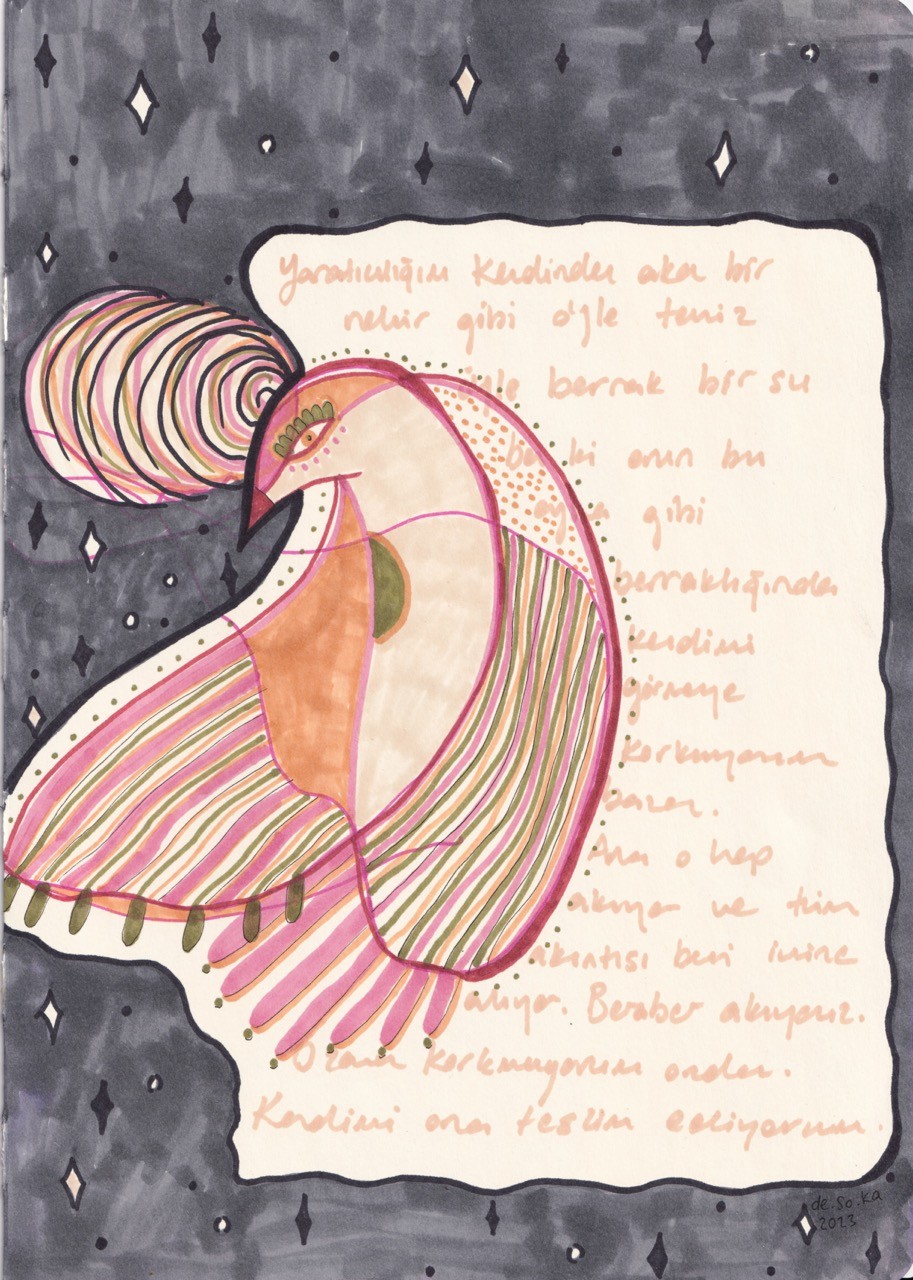 Yaratıcılığım kendinden aka bir
nehir gibi öyle temiz
öyle berrak bir su
belki onun bu
ayna gibi
berraklığında
kendimi
görmeye
korkuyorum
bazen.
Ama o hep
akıyor ve tüm
akıntısı beni içine
alıyor. Beraber akıyoruz.
O zaman korkmuyorum ondan.
Kendimi ona teslim ediyorum.
de.so.ka
2023